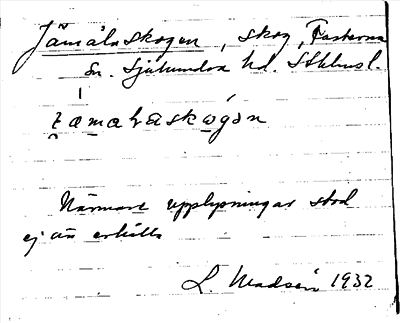 Jämalaskogen, skog, Fasterna
Sn. Sjuhundra hd. Sthlmsl.
Närmare upplysningar stod
ej att erhålla
L. Madsén 1932